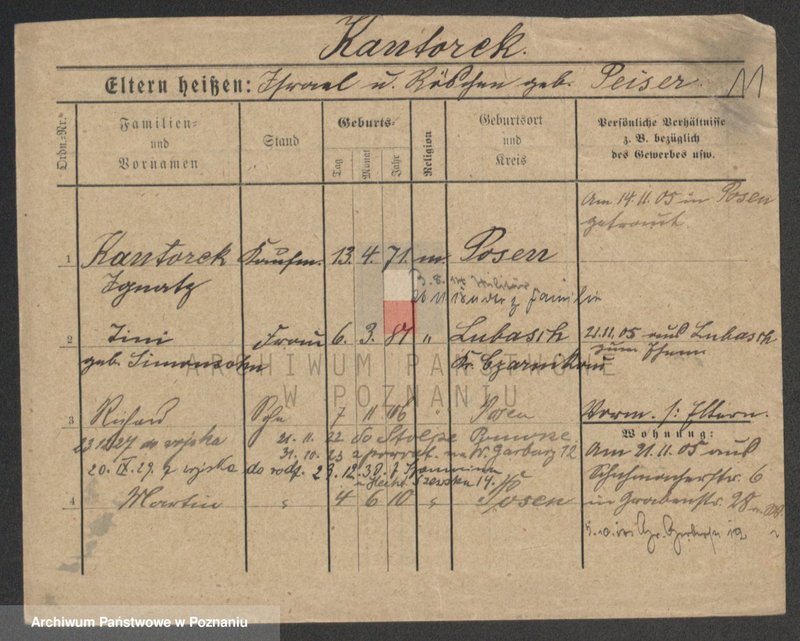 Kantorek.
Eltern heißen: Israel u. Röschen geb. Peiser.
Ordn.-Nr.
Familien-
und
Vornamen
Stand
Geburts-
Tag
Monat
Jahr
Religion
Geburtsort
und
Kreis
Persönliche Verhältnisse
z. B. bezüglich
des Gewerbes usw.
Am 14.11.05 in Posen
getraut.
1 Kantorek Kaufm. 13. 4. 71. m. Posen
Ignatz
Militär
Familie
2 Tini Frau 6. 3. 81 " Lubasch 21.11.05 aus Lubasch
geb. Simonsohn Kr. Czarnikau zum
3 Richard Sohn 7 11 06 " Posen Vorm. s: Eltern.
Wohnung:
wojska 21. 11. 22 do Stolpe
31. 10. 23 z powrot. Garbary
20. IX. 29. z wojska do rodz. 23. 12. 38. z
Szewska 14.
Am 21.11.05 aus
Schuhmacherstr. 6
in Grabenstr. 28
4 Martin " 4 6 10 " Posen
ARCHIWUM PAŃSTWOWE
W POZNANIU
Archiwum Państwowe w Poznaniu